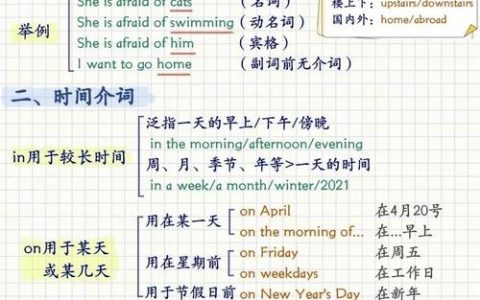 She is afraid of cats （名词）
楼上下：upstairs/downstairs
举例
She is afraid of swimming （动名词）
国内外：home/abroad
She is afraid of him （宾格）
I want to go home （副词前无介词）
二、时间介词
泛指一天的早上/下午/傍晚
in the morning/afternoon/evening
in用于较长时间
周、月、季节、年等>一天的时间
in a week/a month/winter/2021
用在某一天
on April 在4月20号
on the morning of... 在...早上
on用于某天
或某几天
用在星期前
on Friday 在周五
on weekdays 在工作日
用于节假日前
on New Year's Day 在新年